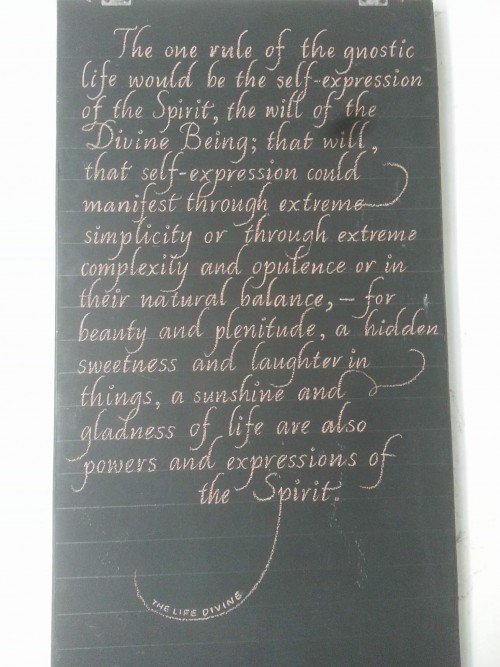 The one rule of the gnostic
life would be the self-expression
of the Spirit, the will of the
Divine Being; that will,
that self-expression could
manifest through extreme
simplicity or through extreme
complexity and opulence or in
their natural balance, – for
beauty and plenitude, a hidden
sweetness and laughter in
things, a sunshine and
gladness of life are also
powers and expressions of
the Spirit.
THE LIFE DIVINE